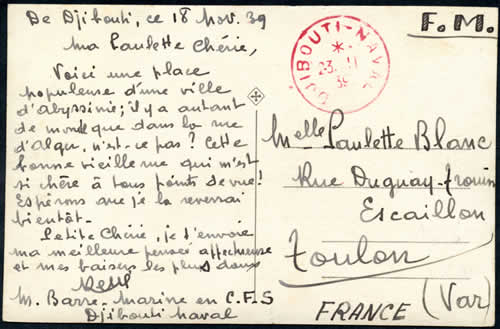 De Djibouti, ce 18 Nov. 39
Ma Paulette Chérie,
Voici une place
populeuse d'une ville
d'Abyssinie; il y a autant
de monde que dans la rue
d'Alger, n'est-ce pas? Cette
bonne vieille rue qui m'est
si chère à tous points de vue!
Espérons que je la reverrai
bientôt.
Petite Chérie, je t'envoie
ma meilleure pensée affectueuse
et mes baisers les plus doux
M. Barre-Marine en C.F.S
Djibouti Naval
F.M.
DJIBOUTI-NAVAL
23.11
39
Melle Paulette Blanc
Rue Duguay-Trouin
Escaillon
Toulon
(Var)
FRANCE